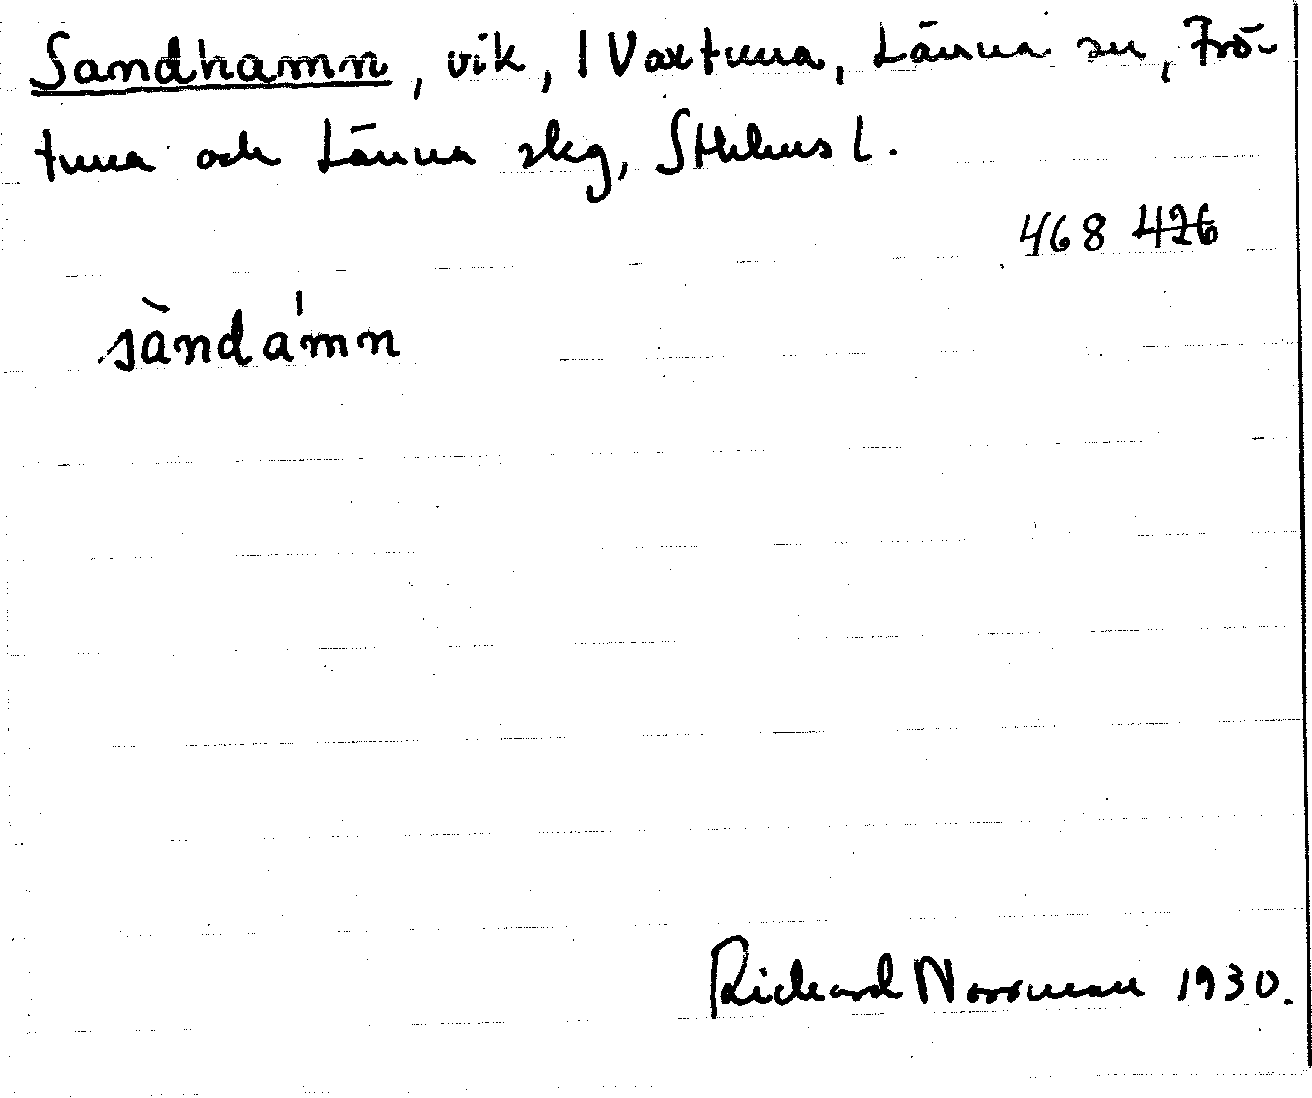 Sandhamn, vik, 1 Vaxtuna, Länna sn, Frö-
tuna och Länna skg, Sthlms l.
468 426
sàndámn
Richard Norrman 1930.